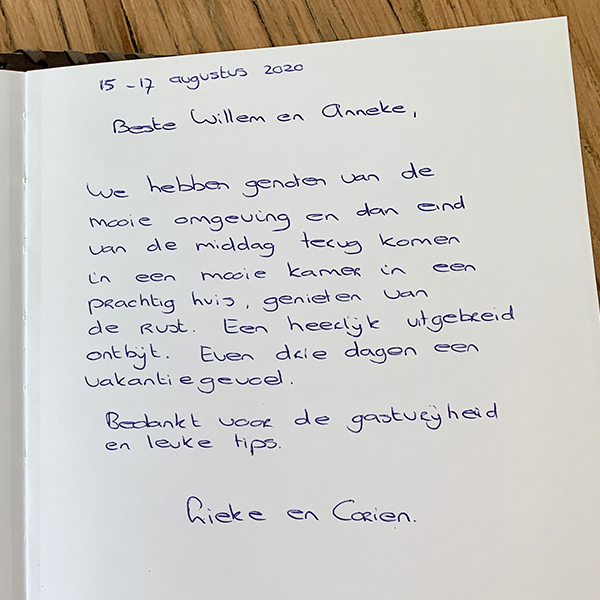 15 - 17 augustus 2020
Beste Willem en Anneke,
We hebben genoten van de
mooie omgeving en dan eind
van de middag terug komen
in een mooie kamer in een
prachtig huis, genieten van
de rust. Een heerlijk uitgebreid
ontbijt. Even drie dagen een
vakantiegevoel.
Bedankt voor de gastvrijheid
en leuke tips.
Lieke en Corien.